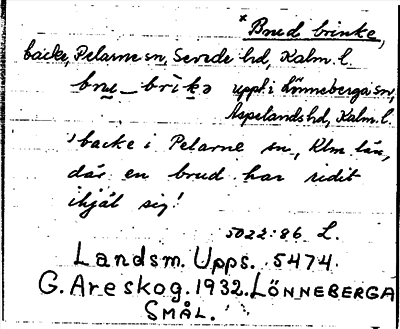 * Brud brinke,
backe, Pelarne sn, Sevede hd, Kalm. l.
uppt. i Lönneberga sn,
Aspelands hd, Kalm. l.
'backe i Pelarne sn, Klm län,
där en brud har ridit
ihjäl sig'
5022:86 L.
Landsm. Upps. 5474.
G. Areskog. 1932. LÖNNEBERGA
SMÅL.